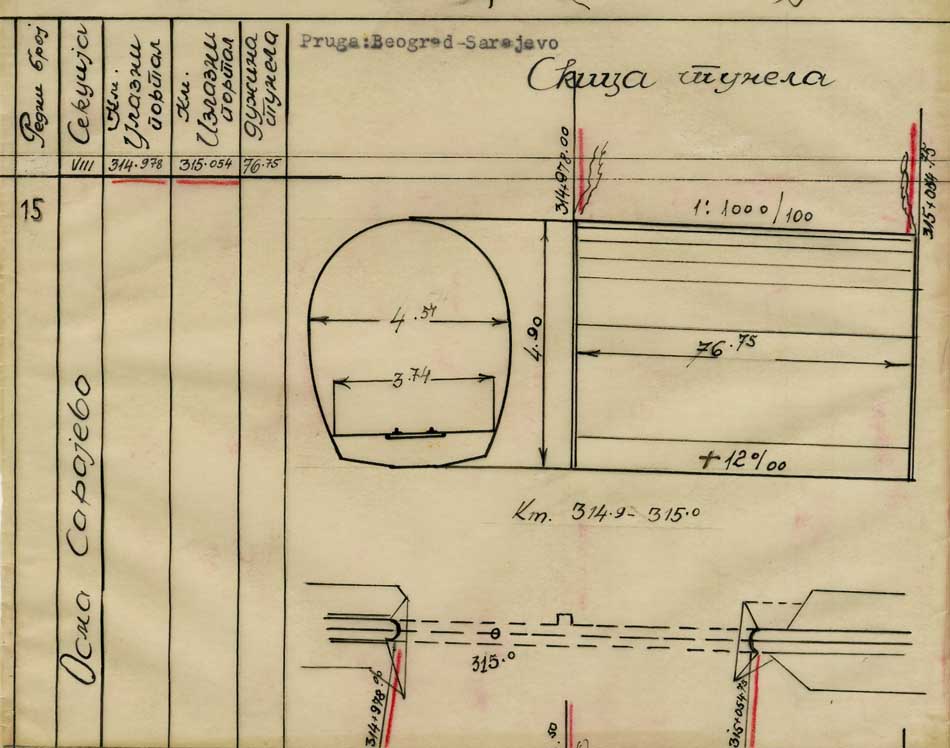 Редни број
Секција
Км.
Улазни портал
Км.
Излазни портал
Дужина тунела
Pruga:Beograd-Sarajevo
Скица тунела
VIII
314.978
315.054
76.75
15
Осма Сарајево
314+978.00
315+054.75
1:1000/100
4.54
3.74
4.90
76.75
+12‰
Кт. 314.9-315.0
315.0
315+054.75
.50